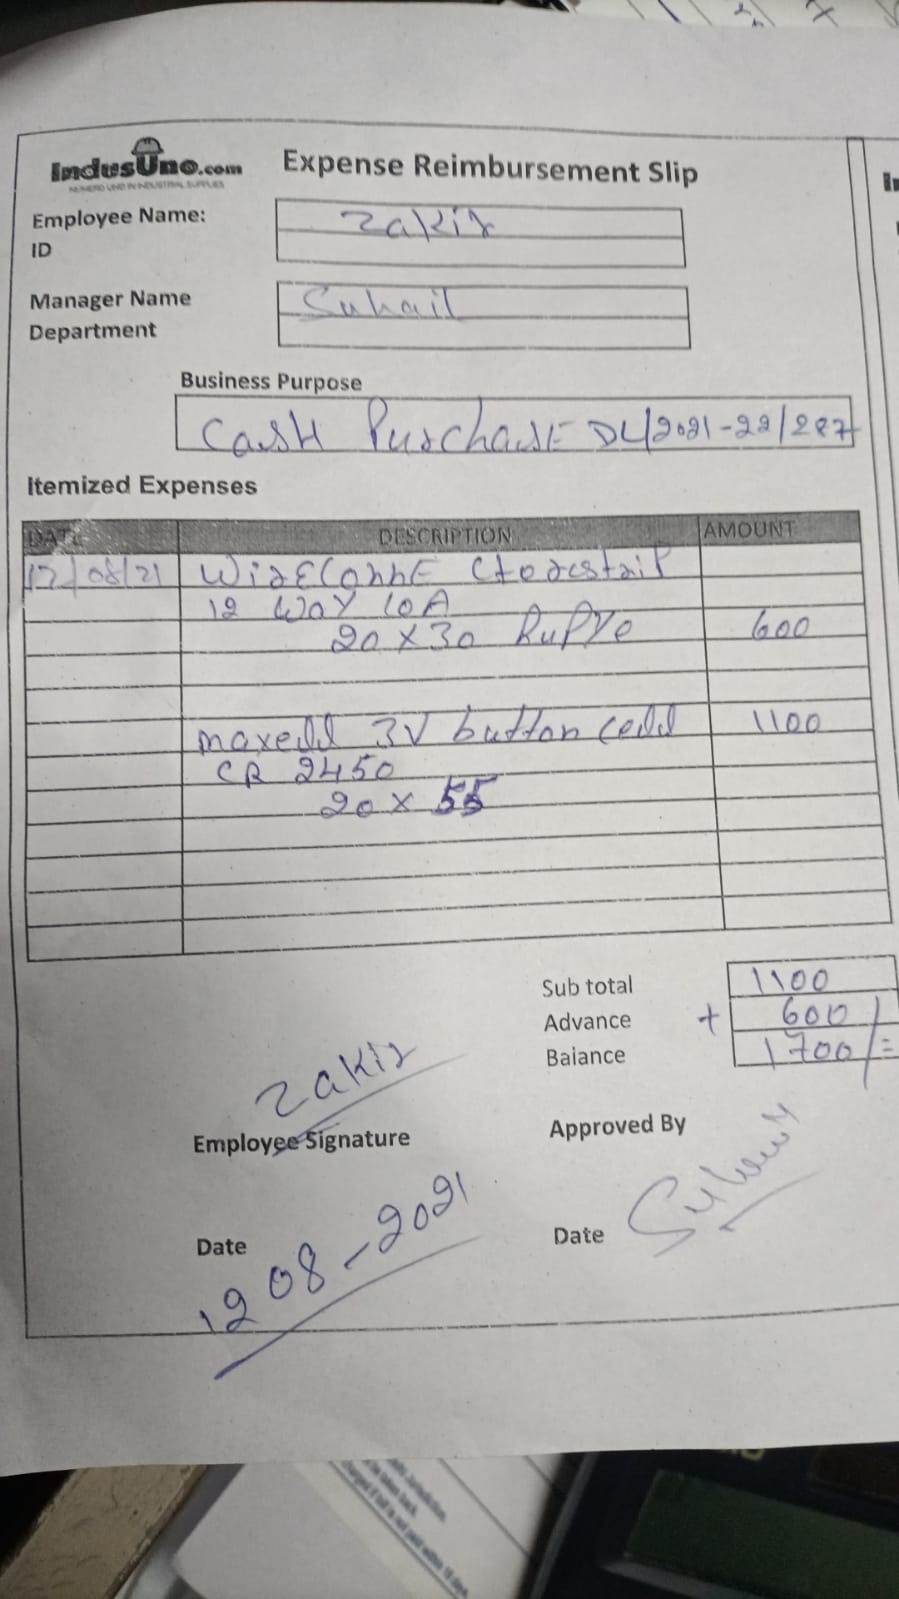 IndusUno.com
NUMERO UNO IN INDUSTRIAL SUPPLIES
Expense Reimbursement Slip
Employee Name: Zakir
ID
Manager Name Suhail
Department
Business Purpose
Cash Purchase DL/2021-22/287
Itemized Expenses
DATE DESCRIPTION AMOUNT
12/08/21
12 Way 10A
20 x 30 600
maxell 3V button cell 1100
CR 2450
20 x 55
Sub total 1100
Advance + 600/
Balance 1700/=
Zakir
Employee Signature
Approved By
Date 12 08-2021
Date